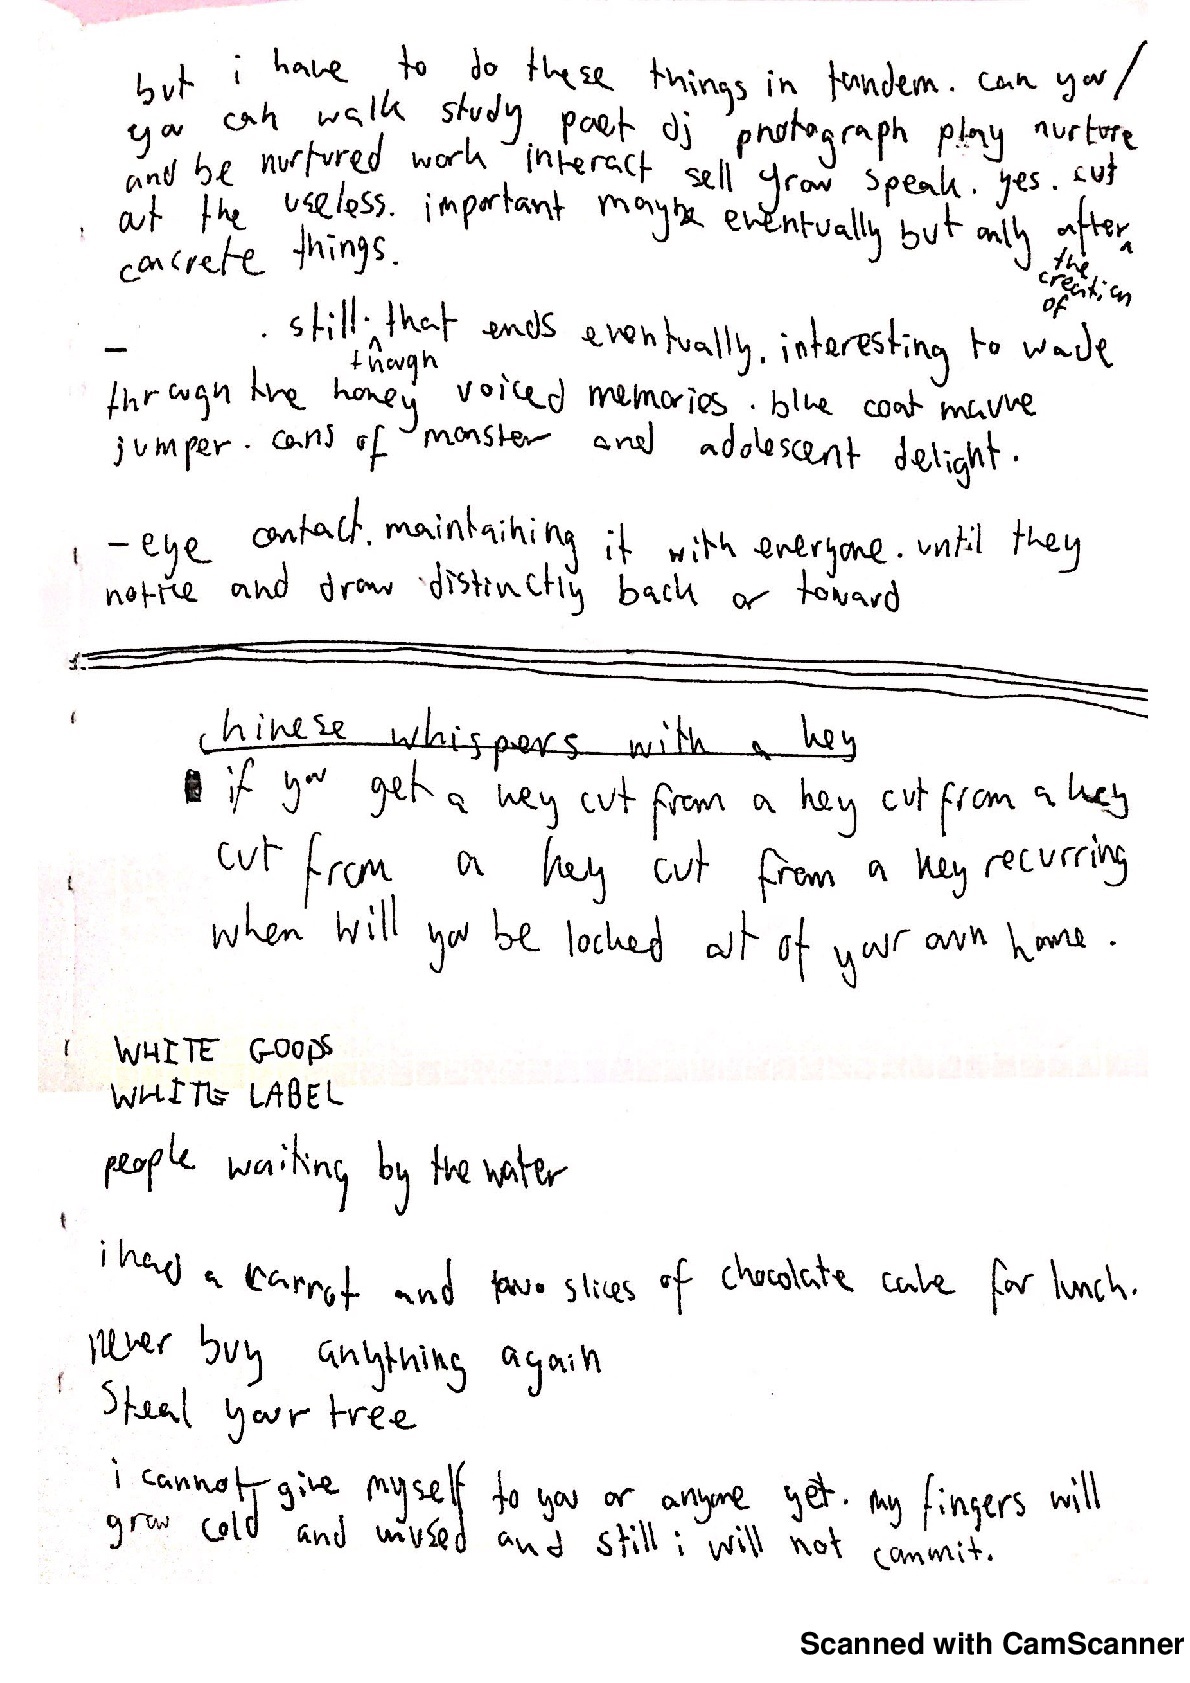 but i have to do these things in tandem. can you/
you can walk study poet dj photograph play nurture
and be nurtured work interact sell grow speak. yes. cut
out the useless. important maybe eventually but only after ^
the
creation
of
concrete things.
– . still. ^ that ends eventually. interesting to wade
though
through the honey voiced memories. blue coat mauve
jumper. cans of monster and adolescent delight.
– eye contact. maintaining it with everyone. until they
notice and draw distinctly back or toward
chinese whispers with a key
if you get a key cut from a key cut from a key
cut from a key cut from a key recurring
when will you be locked out of your own home.
WHITE GOODS
WHITE LABEL
people waiting by the water
i had a carrot and two slices of chocolate cake for lunch.
never buy anything again
Steal your tree
i cannot give myself to you or anyone yet. my fingers will
grow cold and unused and still i will not commit.
Scanned with CamScanner